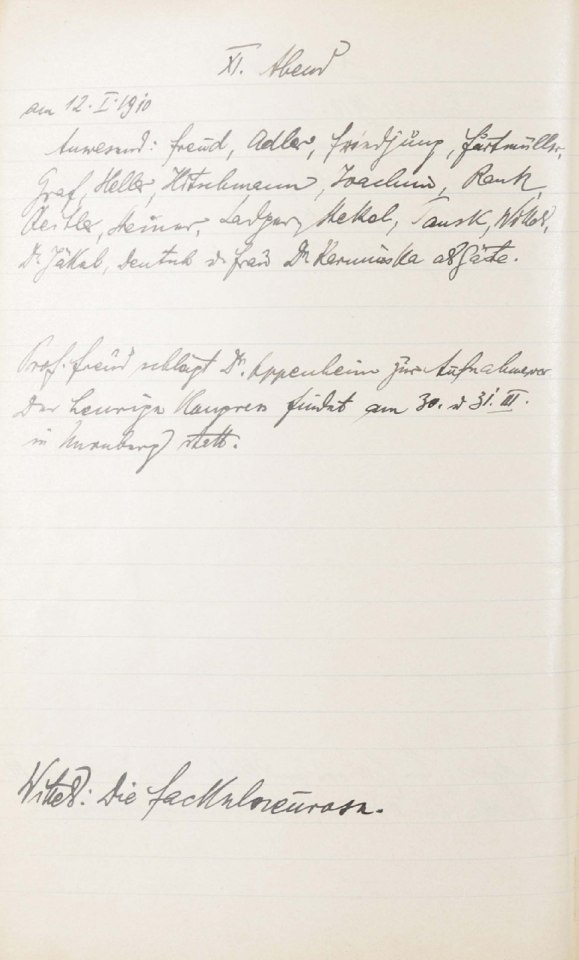 XI. Abend
am 12. I. 1910
Anwesend: Freud, Adler, Friedjung, Furtmüller,
Graf, Heller, Hitschmann, Joachim, Rank,
Reitler, Steiner, Sadger, Stekel, Tausk, Wittels,
Dr. Jekels, Deutsch u. Frau Dr. Karminska als Gäste.
Prof. Freud schlägt Dr. Oppenheim zur Aufnahme vor
Der heurige Kongress findet am 30. u 31. III.
in Nürnberg statt.
Wittels: Die Fackelneurose.